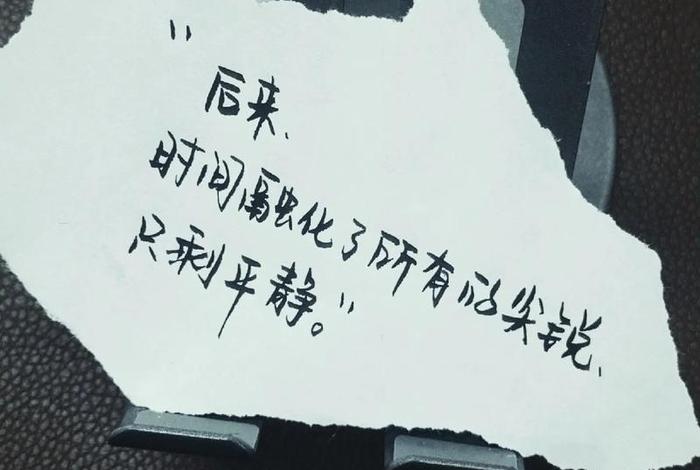 "后来、
时间融化了所有的尖锐、
只剩平静。"